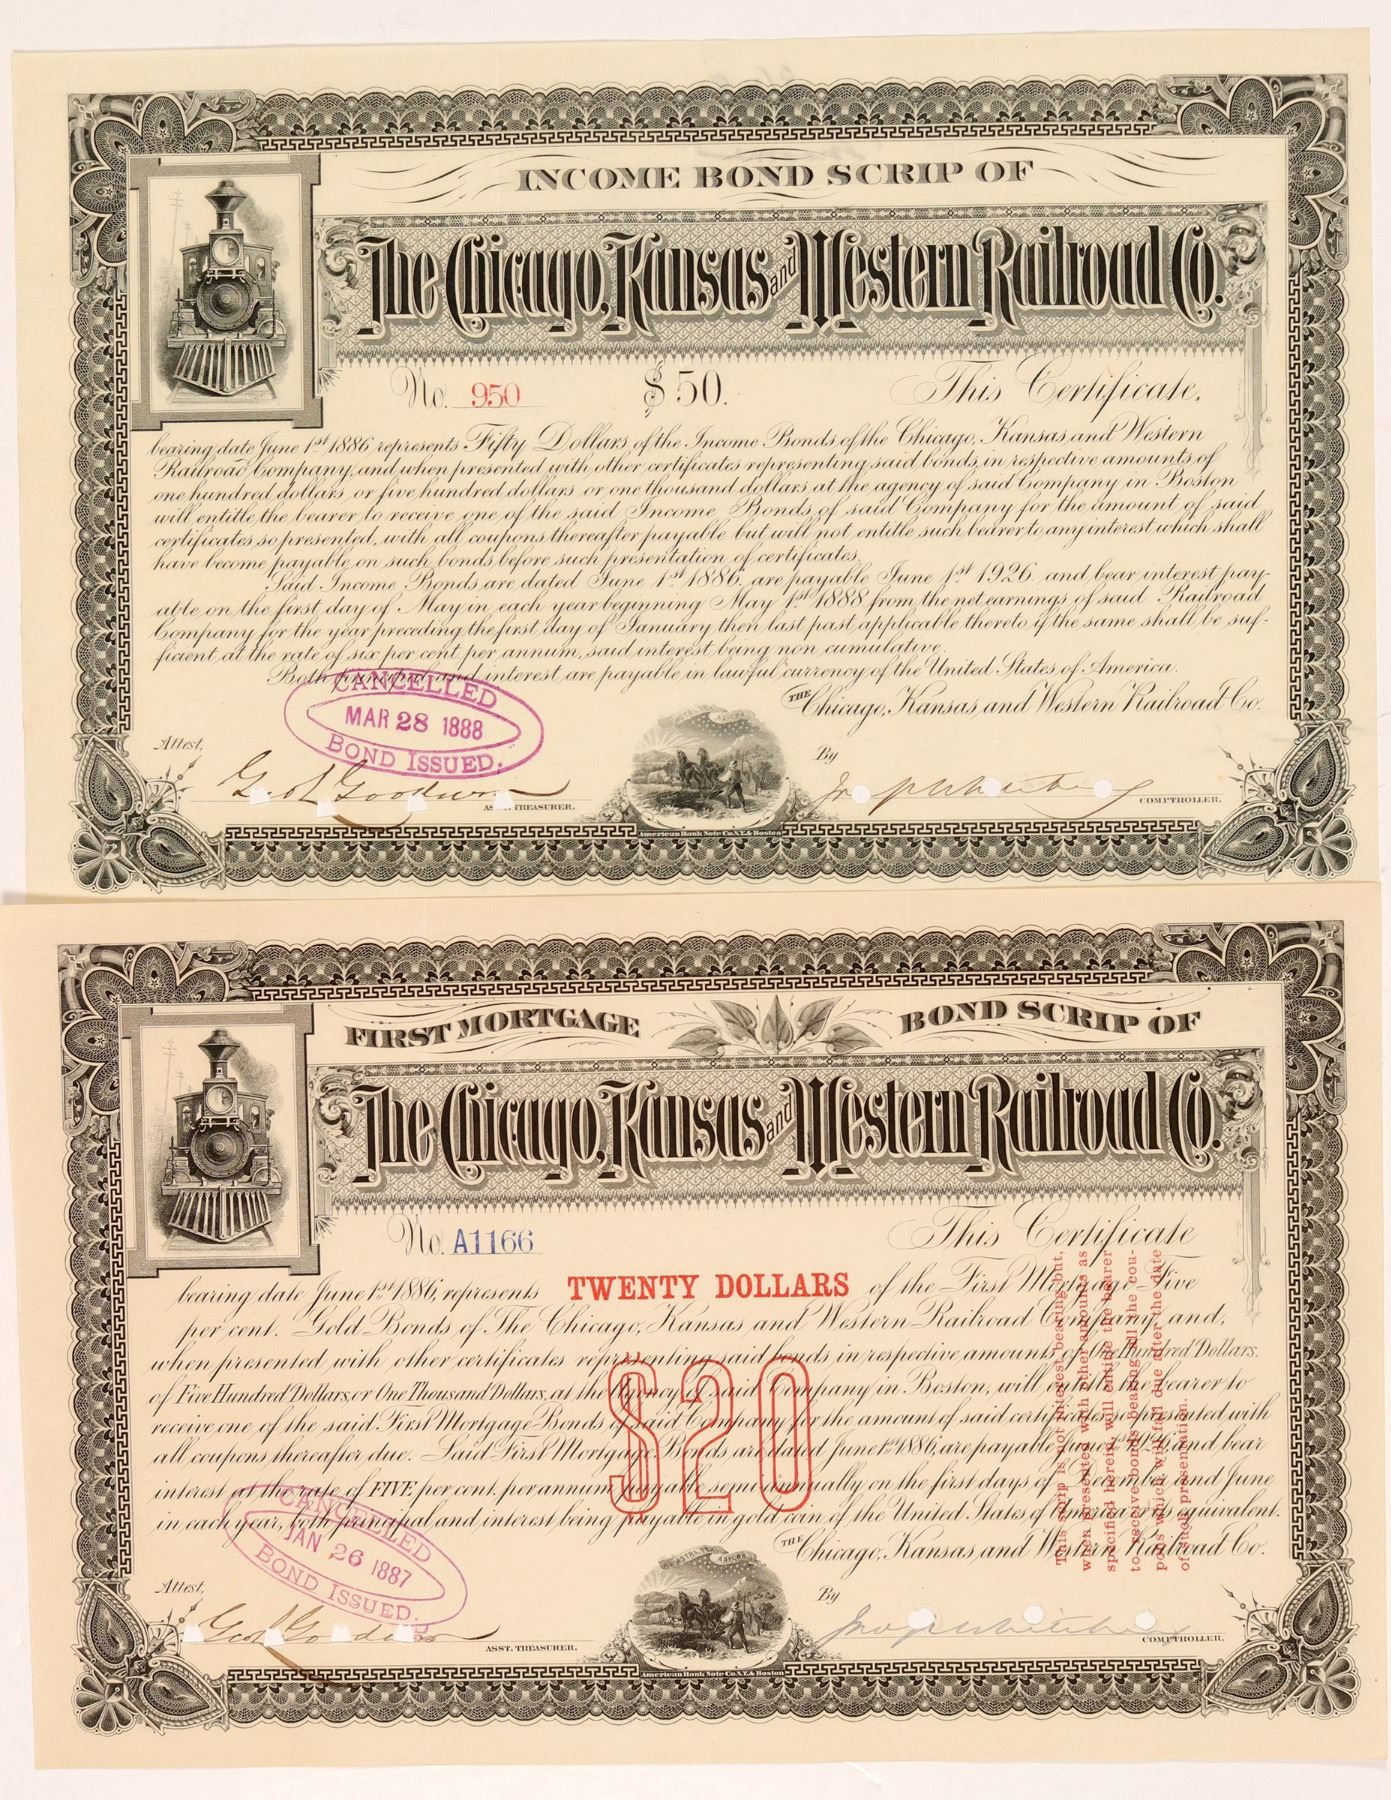 INCOME BOND SCRIP OF
The Chicago, Kansas and Western Railroad Co.
No. 950 $50. This Certificate,
bearing date June 1st 1886, represents Fifty Dollars of the Income Bonds of the Chicago, Kansas and Western
Railroad Company, and when presented with other certificates representing said bonds, in respective amounts of
one hundred dollars or five hundred dollars or one thousand dollars at the agency of said Company in Boston
will entitle the bearer to receive one of the said Income Bonds of said Company for the amount of said
certificates so presented, with all coupons thereafter payable but will not entitle such bearer to any interest which shall
have become payable on such bonds before such presentation of certificates.
Said Income Bonds are dated June 1st 1886, are payable June 1st 1926 and bear interest pay-
able on the first day of May in each year beginning May 1st 1888 from the net earnings of said Railroad
Company for the year preceding the first day of January then last past applicable thereto if the same shall be suf-
ficient at the rate of six per cent. per annum, said interest being non cumulative.
Both principal and interest are payable in lawful currency of the United States of America.
CANCELLED
MAR 28 1888
BOND ISSUED.
THE Chicago, Kansas and Western Railroad Co.
Attest, By
Geo L Goodwin
ASST. TREASURER.
Jno P Whitehead
COMPTROLLER.
American Bank Note Co. N.Y. & Boston
FIRST MORTGAGE BOND SCRIP OF
The Chicago, Kansas and Western Railroad Co.
No. A1166 This Certificate
bearing date June 1st 1886, represents TWENTY DOLLARS of the First Mortgage Five
per cent. Gold Bonds of The Chicago, Kansas and Western Railroad Company and,
when presented with other certificates representing said bonds in respective amounts of One Hundred Dollars.
of Five Hundred Dollars, or One Thousand Dollars, at the Agency of said Company in Boston, will entitle the bearer to
receive one of the said First Mortgage Bonds of Said Company for the amount of said certificates so presented with
all coupons thereafter due. Said First Mortgage Bonds are dated June 1st 1886, are payable June 1st 1926, and bear
interest at the rate of FIVE per cent. per annum payable semi-annually on the first days of December and June
in each year, both principal and interest being payable in gold coin of the United States of America or its equivalent.
$20
This scrip is not interest bearing but,
when presented with other amounts as
specified herein, will entitle the bearer
to receive bonds bearing all the cou-
pons which will fall due after the date
of such presentation.
CANCELLED
JAN 26 1887
BOND ISSUED.
THE Chicago, Kansas and Western Railroad Co.
Attest, By
Geo L Goodwin
ASST. TREASURER.
Jno P Whitehead
COMPTROLLER.
AD ASTRA PER ASPERA
American Bank Note Co. N.Y. & Boston